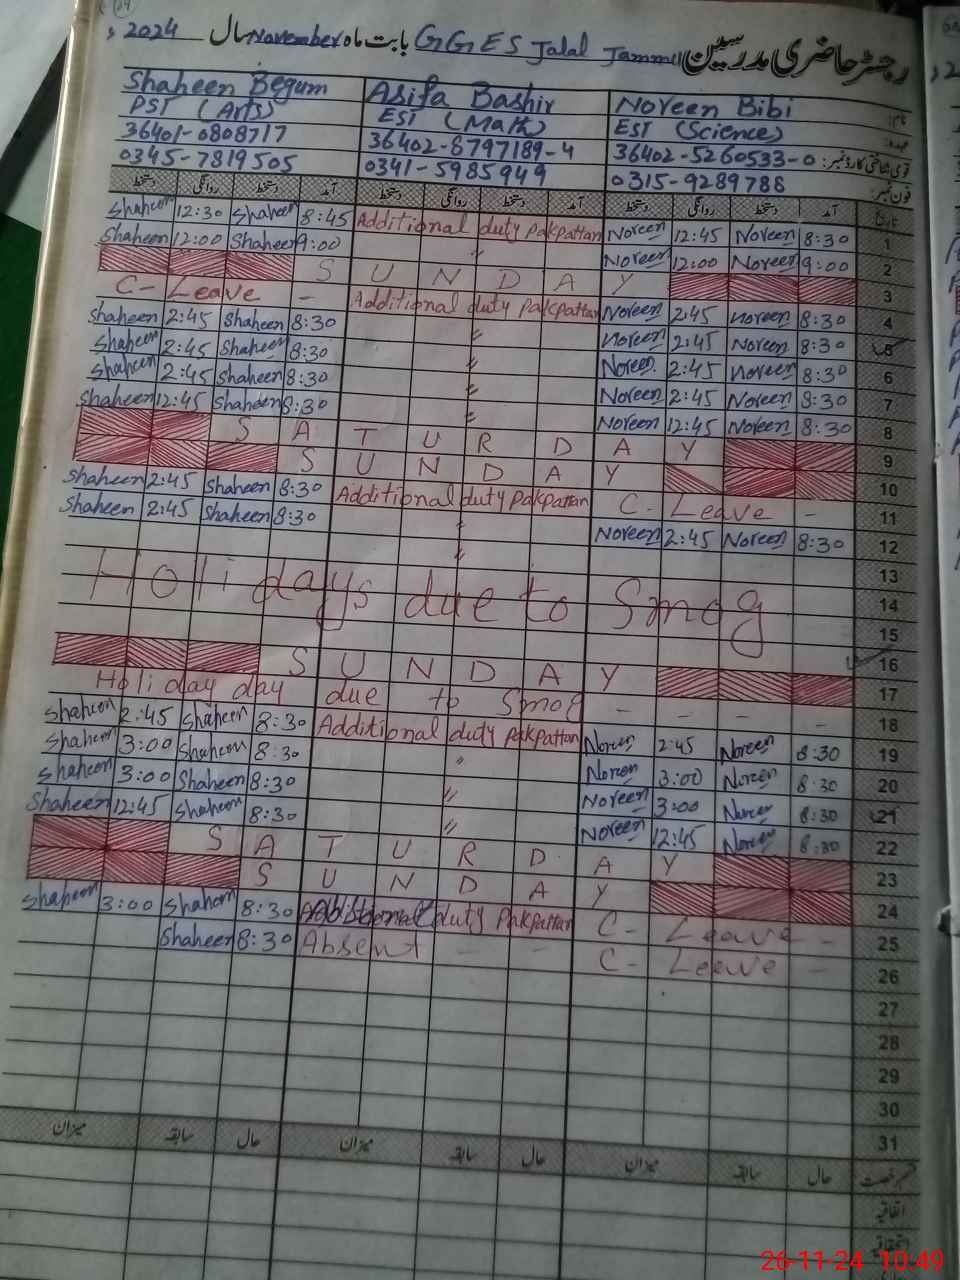 رجسٹر حاضری مدرسین GGES Jalal Jammu بابت ماہ November سال 2024ء
Shaheen Begum Asifa Bashir Noreen Bibi نام:
PST (Arts) EST (Math) EST (Science) عہدہ:
36401-0808717 36402-8797189-4 36402-5260533-0 قومی شناختی کارڈ نمبر:
0345-7819505 0341-5985949 0315-9289788 فون نمبر:
دستخط روانگی دستخط آمد دستخط روانگی دستخط آمد دستخط روانگی دستخط آمد تاریخ
Shaheen 12:30 Shaheen 8:45 Additional duty Pakpattan Noreen 12:45 Noreen 8:30 1
Shaheen 12:00 Shaheen 9:00 〃 Noreen 12:00 Noreen 9:00 2
S U N D A Y 3
C- Leave - Additional duty Pakpattan Noreen 2:45 Noreen 8:30 4
Shaheen 2:45 Shaheen 8:30 〃 Noreen 2:45 Noreen 8:30 5
Shaheen 2:45 Shaheen 8:30 〃 Noreen 2:45 Noreen 8:30 6
Shaheen 2:45 Shaheen 8:30 〃 Noreen 2:45 Noreen 8:30 7
Shaheen 12:45 Shaheen 8:30 〃 Noreen 12:45 Noreen 8:30 8
S A T U R D A Y 9
S U N D A Y 10
Shaheen 2:45 Shaheen 8:30 Additional duty Pakpattan C- Leave - 11
Shaheen 2:45 Shaheen 8:30 〃 Noreen 2:45 Noreen 8:30 12
〃 13
Holidays due to Smog 14
15
16
S U N D A Y 17
Holi day day due to Smog - - - - 18
Shaheen 2:45 Shaheen 8:30 Additional duty Pakpattan Noreen 2:45 Noreen 8:30 19
Shaheen 3:00 Shaheen 8:30 〃 Noreen 3:00 Noreen 8:30 20
Shaheen 3:00 Shaheen 8:30 〃 Noreen 3:00 Noreen 8:30 21
Shaheen 12:45 Shaheen 8:30 〃 Noreen 12:45 Noreen 8:30 22
S A T U R D A Y 23
S U N D A Y 24
Shaheen 3:00 Shaheen 8:30 Additional duty Pakpattan C- Leave - 25
Shaheen 8:30 Absent - - C- Leeve - 26
27
28
29
30
31
میزان سابقہ حال میزان سابقہ حال میزان سابقہ حال قسم رخصت
اتفاقیہ
استحقاقیہ
26-11-24 10:49